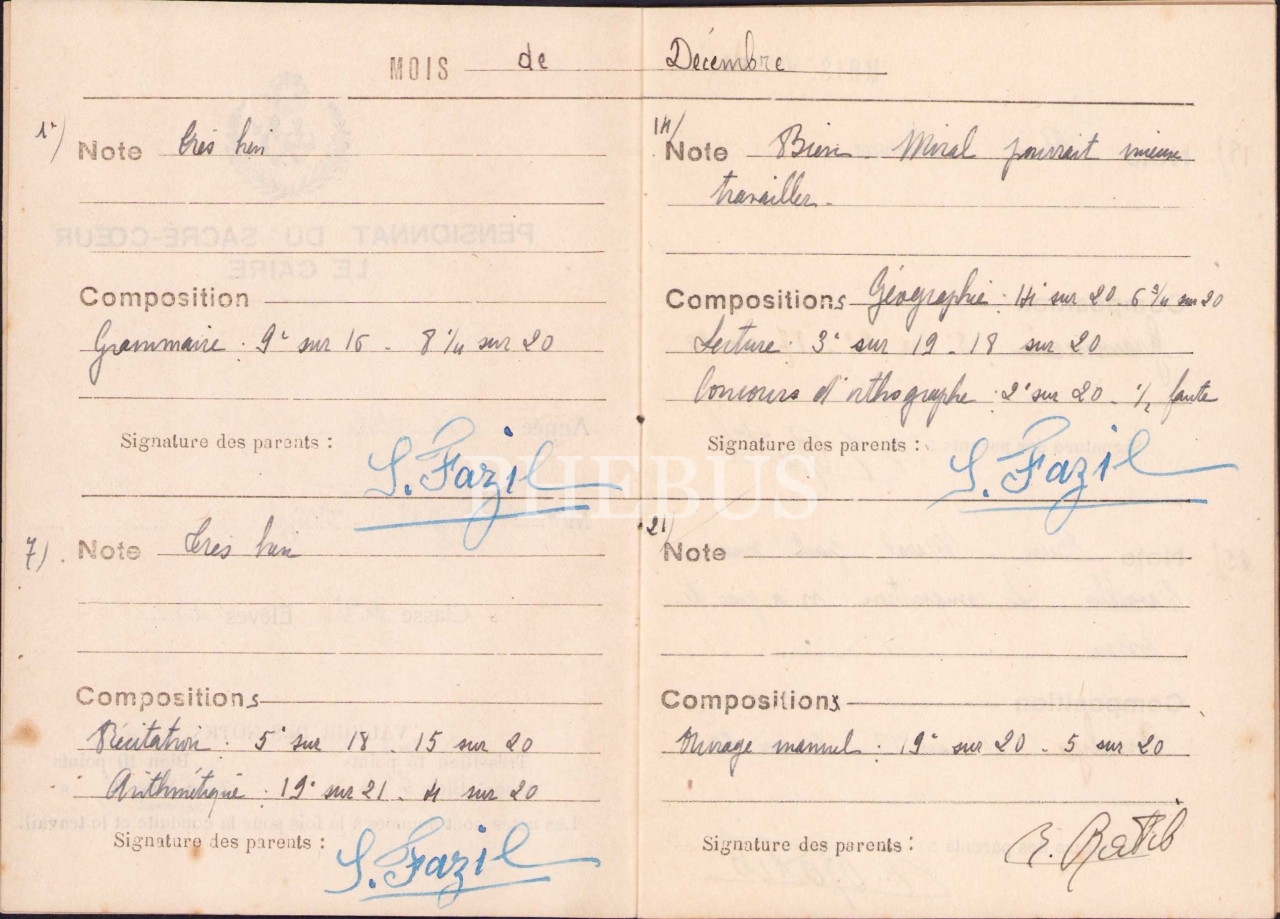 MOIS de Décembre
1r)
Note Très bien
Composition
Grammaire : 9e sur 16 - 8 1/4 sur 20
Signature des parents :
S. Fazil
7)
Note Très bien
Compositions
Récitation : 5e sur 18 15 sur 20
Arithmétique : 19e sur 21 - 4 sur 20
Signature des parents :
S. Fazil
14/
Note Bien - Miral pourrait mieux
travailler -
Compositions Géographie : 14e sur 20. 6 3/4 sur 20
Lecture : 3e sur 19 - 18 sur 20
Concours d'orthographe : 2e sur 20 - 1/2 faute
Signature des parents :
S. Fazil
21)
Note
Compositions
Ouvrage manuel : 19e sur 20 - 5 sur 20
Signature des parents :
E. Ratib
PHEBUS
PENSIONNAT DU SACRÉ-CŒUR
LE CAIRE